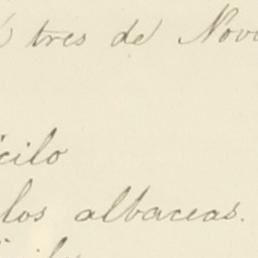 tres de Nov
cilo
los albaceas.